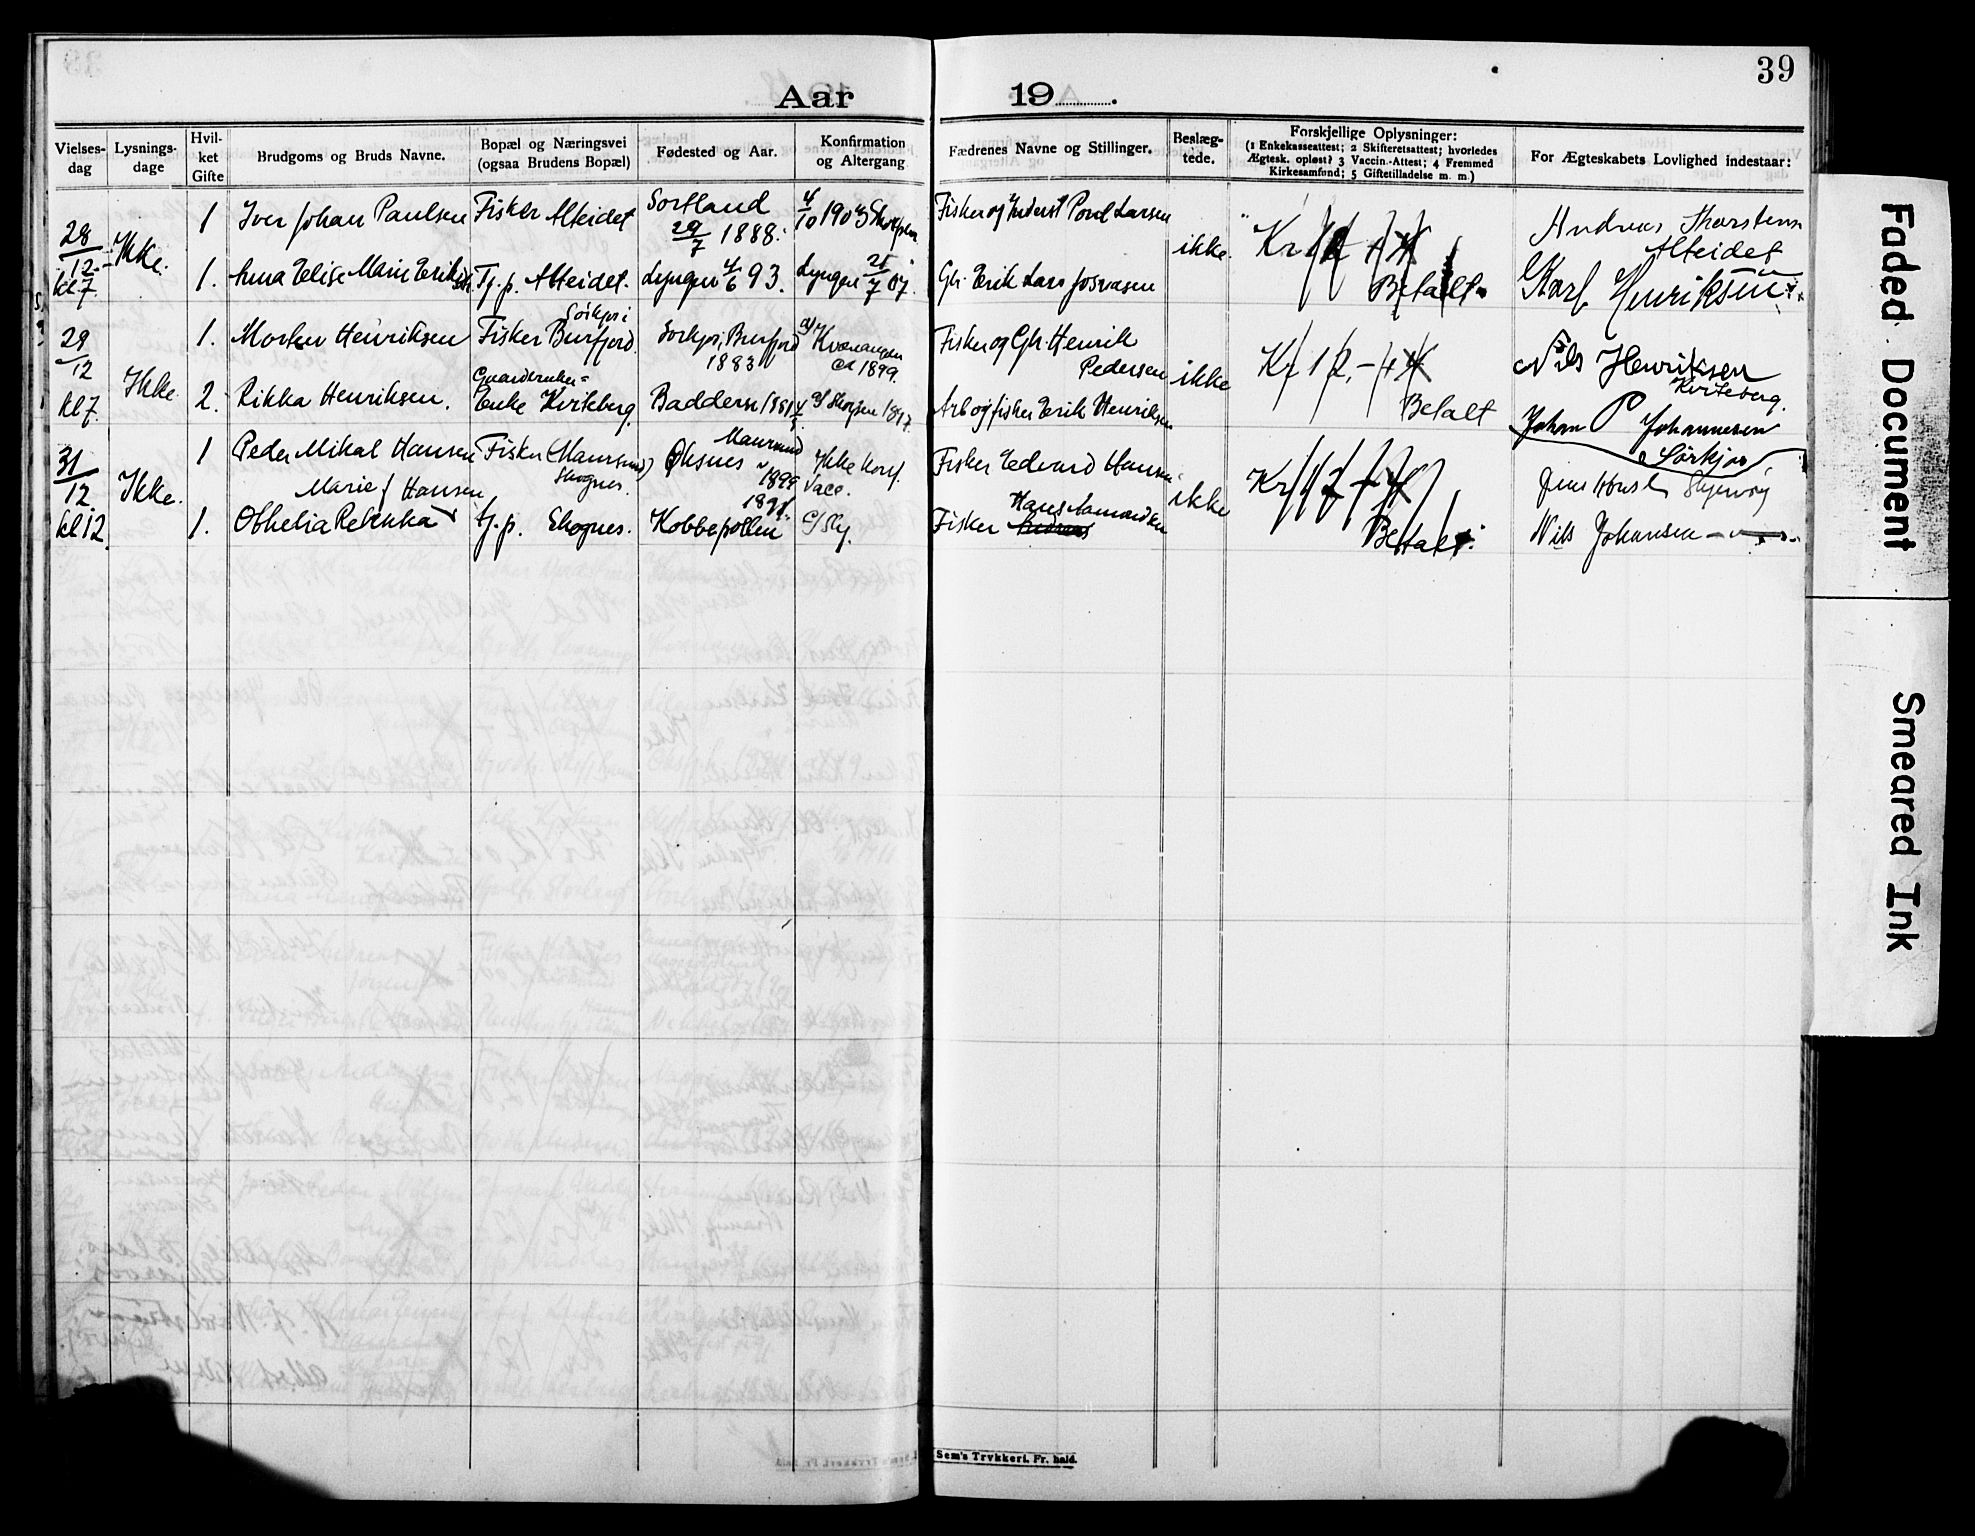 39
Aar 19 .
Vielses-dag
Lysnings-dage
Hvil-ket Gifte
Brudgoms og Bruds Navne.
Bopæl og Næringsvei (ogsaa Brudens Bopæl)
Fødested og Aar.
Konfirmation og Altergang
Fædrenes Navne og Stillinger.
Beslæg-tede.
Forskjellige Oplysninger:
(1 Enkekasseattest; 2 Skifteretsattest; hvorledes
Ægtesk. opløst? 3 Vaccin.-Attest; 4 Fremmed
Kirkesamfund; 5 Giftetilladelse m. m.)
For Ægteskabets Lovlighed indestaar:
28/12 kl 7.
Ikke.
1 Iver Johan Paulsen Fisker Alteidet Sortland 29/7 1888. 4/10 1903
Fisker og Poul Larsen
ikke.
Kr 12
Betalt.
Andreas Thorstens
Alteidet
1. Anna Elise Marie Eriksen Tj. p. Alteidet. Lyngen 4/6 93. Lyngen 21/7 07.
Gbr. Erik Lars Josvasen
Karl Henriksen
28/12 kl 7.
Ikke
1. Morten Henriksen Fisker Burfjord Sörkjos i Burfjord 1883 Kvænangen ca 1899.
Fisker og Gbr. Henrik Pedersen
ikke
Kr 12,-
Betalt
Nils Henriksen
Kviteberg.
2. Rikka Henriksen. Gaardbruker= Enke Kviteberg. Baddersn 1881
Arb og fisker Erik Henriksen
Johan P Johannesen
Sörkjos
31/12. kl 12.
Ikke.
1 Peder Mikal Hansen Fisker (Maursund) Skognes. Øksnes Maursund 1899 Ikke Konf. Vacc.
Fisker Edvard Hansen
ikke
Kr 12
Betalt.
Jens Skjervöy
Marie J Hansen
1. Othelia Rebekka tj. p. Skognes. Kobbepollen 189 Skj.
Fisker Hans
Nils Johansen
Sem's Trykkeri. Fr. hald.
Faded Document
Smeared Ink